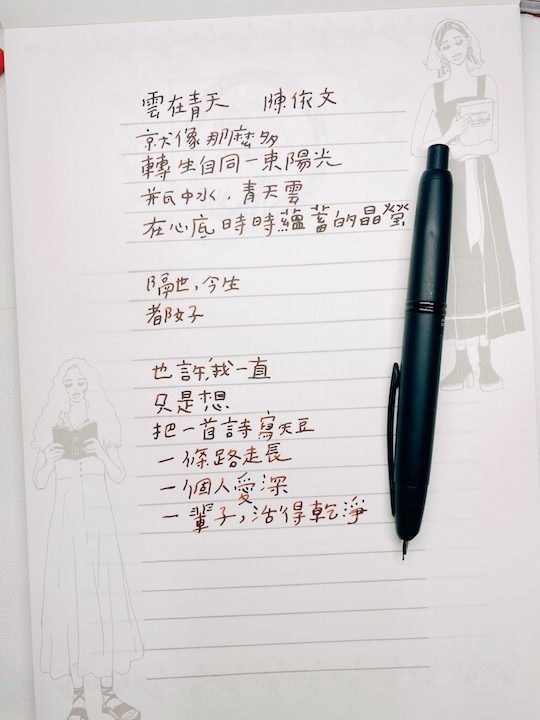 雲在青天 陳依文
就像那麼多
轉生自同一束陽光
瓶中水,青天雲
在心底時時蘊蓄的晶瑩
隔世,今生
都好
也許我一直
只是想
把一首詩寫短
一條路走長
一個人愛深
一輩子,活得乾淨